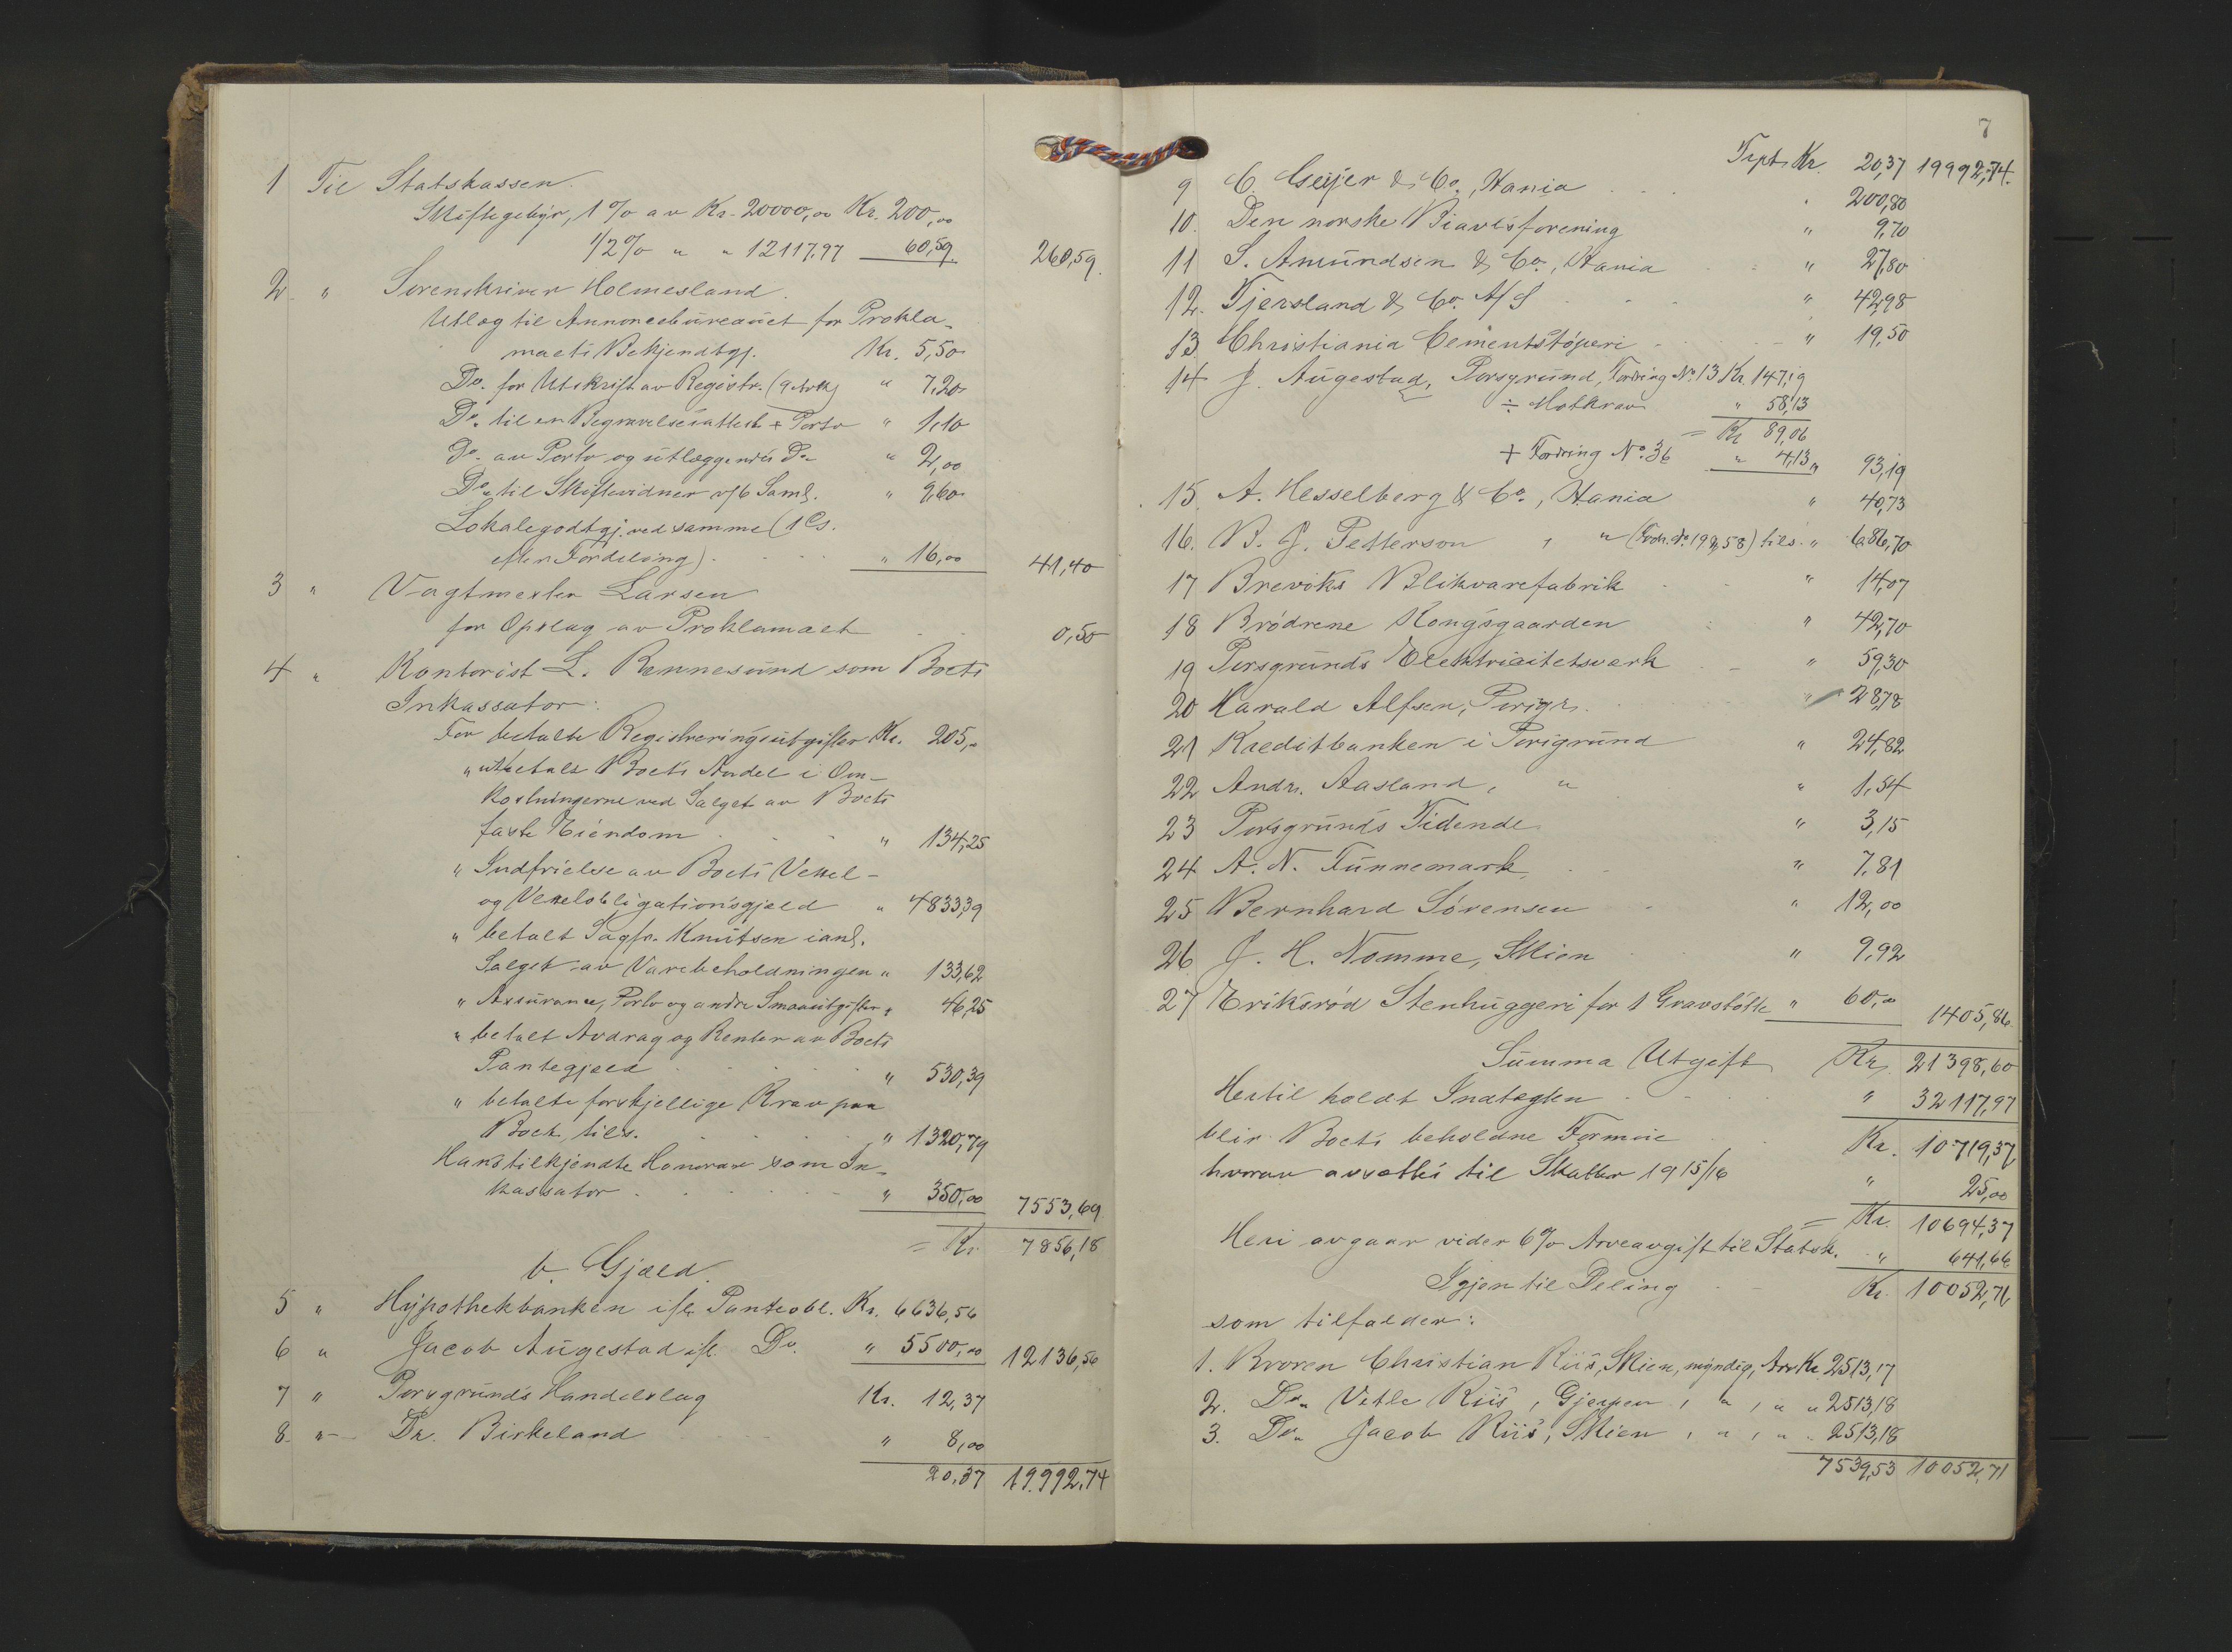 1 Til Statskassen.
Skiftegebyr, 1% av Kr. 20000,00 Kr. 200,00
1/2% " " 12117,97 60,59 260,59
2 " Sorenskriver Holmesland.
Utlæg til Annoncebureauet for Prokla-
maets Bekjendtgj. Kr. 5,50
Do. for Utskrift av Registr. (9 Ark) " 7,20
Do. til en Begravelsesattest + Porto " 1,10
Do. av Porto og utlæggendes Do. " 2,00
Do. til Skiftevidner v/6 Saml. " 9,60
Lokalegodtgj. ved samme (1 Cs.
efter Fordeling) " 16,00 41,40
3 " Vagtmester Larsen
for Opslag av Proklamaet 0,50
4 " Kontorist L. Rennesund som Boets
Inkassator:
For betalte Registreringsutgifter Kr. 205,-
" utbetalt Boets Andel i Om-
kostningerne ved Salget av Boets
faste Eiendom " 134,25
" Indfrielse av Boets Veksel-
og Vekselobligationsgjæld " 4833,39
" betalt Sagfr. Knutsen ianl.
Salget av Varebeholdningen " 133,62
" Assurance, Porto og andre Smaautgifter " 46,25
" betalt Avdrag og Renter av Boets
Pantegjæld " 530,39
" betalte forskjellige Krav paa
Boet, tils. " 1320,79
Hans tilkjendte Honorar som In-
kassator " 350,00 7553,69
= Kr. 7856,18
b. Gjæld.
5 " Hypothekbanken ifl. Panteobl. Kr. 6636,56
6 " Jacob Augestad ifl. Do. " 5500,00 12136,56
7 " Porsgrunds Handelslag Kr. 12,37
8 " Dr. Birkeland " 8,00
20,37 19.992,74
7
Trpt. Kr. 20,37 19992,74.
9 C. Geijer & Co., Kania " 200,80
10. Den norske Biavlsforening " 9,70
11 S. Amundsen & Co., Kania " 27,80
12. Tjersland & Co. A/S " 42,98
13 Christiania Cementstøperi " 19,50
14 J. Augestad, Porsgrund, Fordring No. 13 Kr. 147,19
÷ Motkrav " 58,13
= Kr. 89,06
+ Fordring No. 36 " 4,13 " 93,19
15. A. Hesselberg & Co., Kania " 40,73
16. B. J. Petterson , " (Fodr. No. 19 & 58) tils. " 686,70
17 Breviks Blikvarefabrik " 14,07
18 Brødrene Kongsgaarden " 42,70
19 Porsgrunds Elektricitetsverk " 59,30
20 Harald Alfsen, Porsgr. " 28,78
21 Kreditbanken i Porsgrund " 24,82
22 Andr. Aasland, " " 1,54
23 Porsgrunds Tidende " 3,15
24 A. N. Funnemark " 7,81
25 Bernhard Sörensen " 12,00
26 J. H. Nomme, Skien " 9,92
27 Eriksrød Stenhuggeri for 1 Gravstötte " 60,00 1405,86
Summa Utgift Kr. 21398,60
Hertil holdt Indtægten " 32117,97
blir Boets beholdne Formue Kr. 10719,37
hvorav avsættes til Skatter 1915/16 " 25,00
= Kr. 10694,37
Heri avgaar vider 6% Arveavgift til Statsk. " 641,66
Igjen til Deling Kr. 10052,71
som tilfalder:
1. Broren Christian Riis, Skien, myndig, Arv Kr. 2513,17
2. Do. Vetle Riis, Gjerpen, " , " " 2513,18
3. Do. Jacob Riis, Skien, " , " " 2513,18
7539,53 10052,71